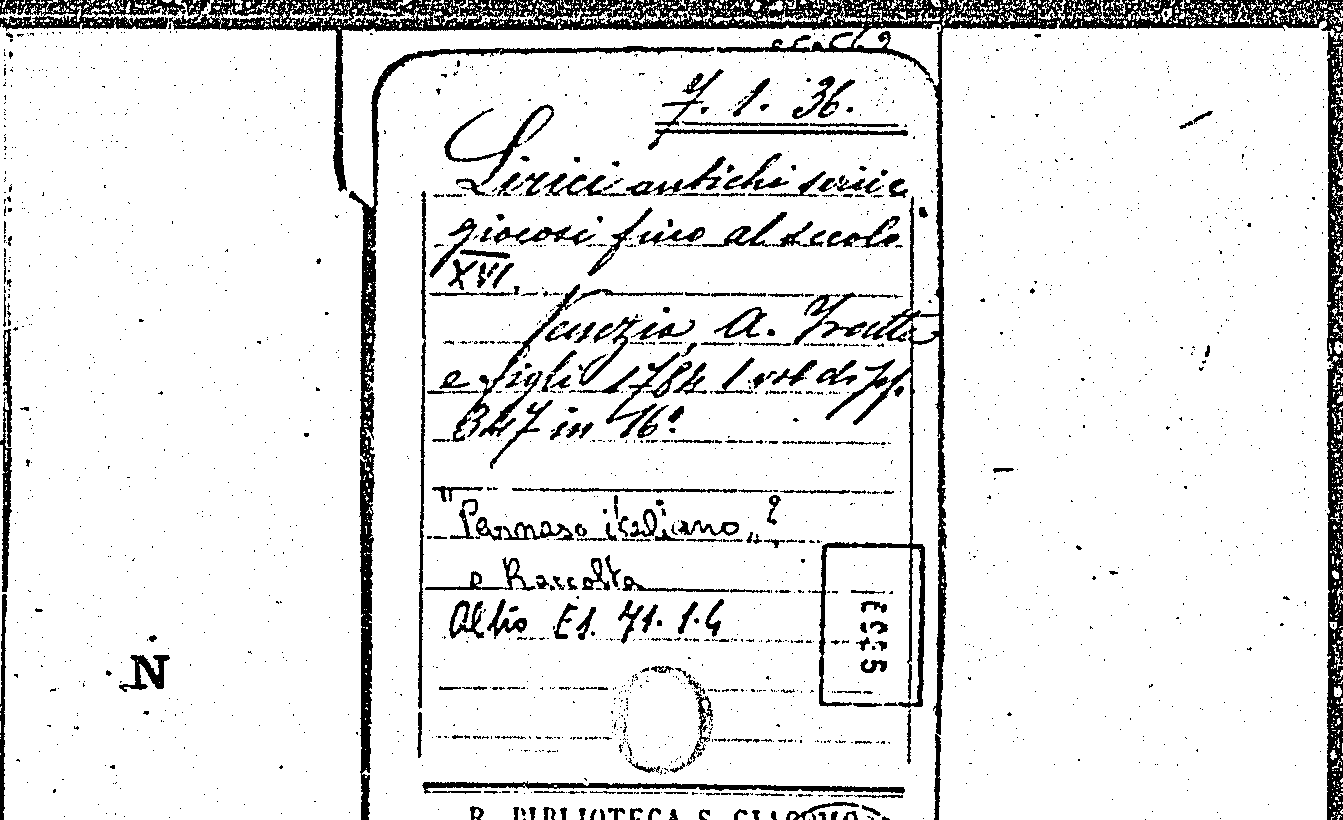 7. 1. 36.
Lirici antichi serii e
giocosi fino al secolo
XVI.
Venezia, A. Zatta
e figli 1784 1 vol di pp.
347 in 16°
"Parnaso italiano„?
o Raccolta
Altro Es. 71. 1. G
N
R. BIBLIOTECA S. GIACOMO